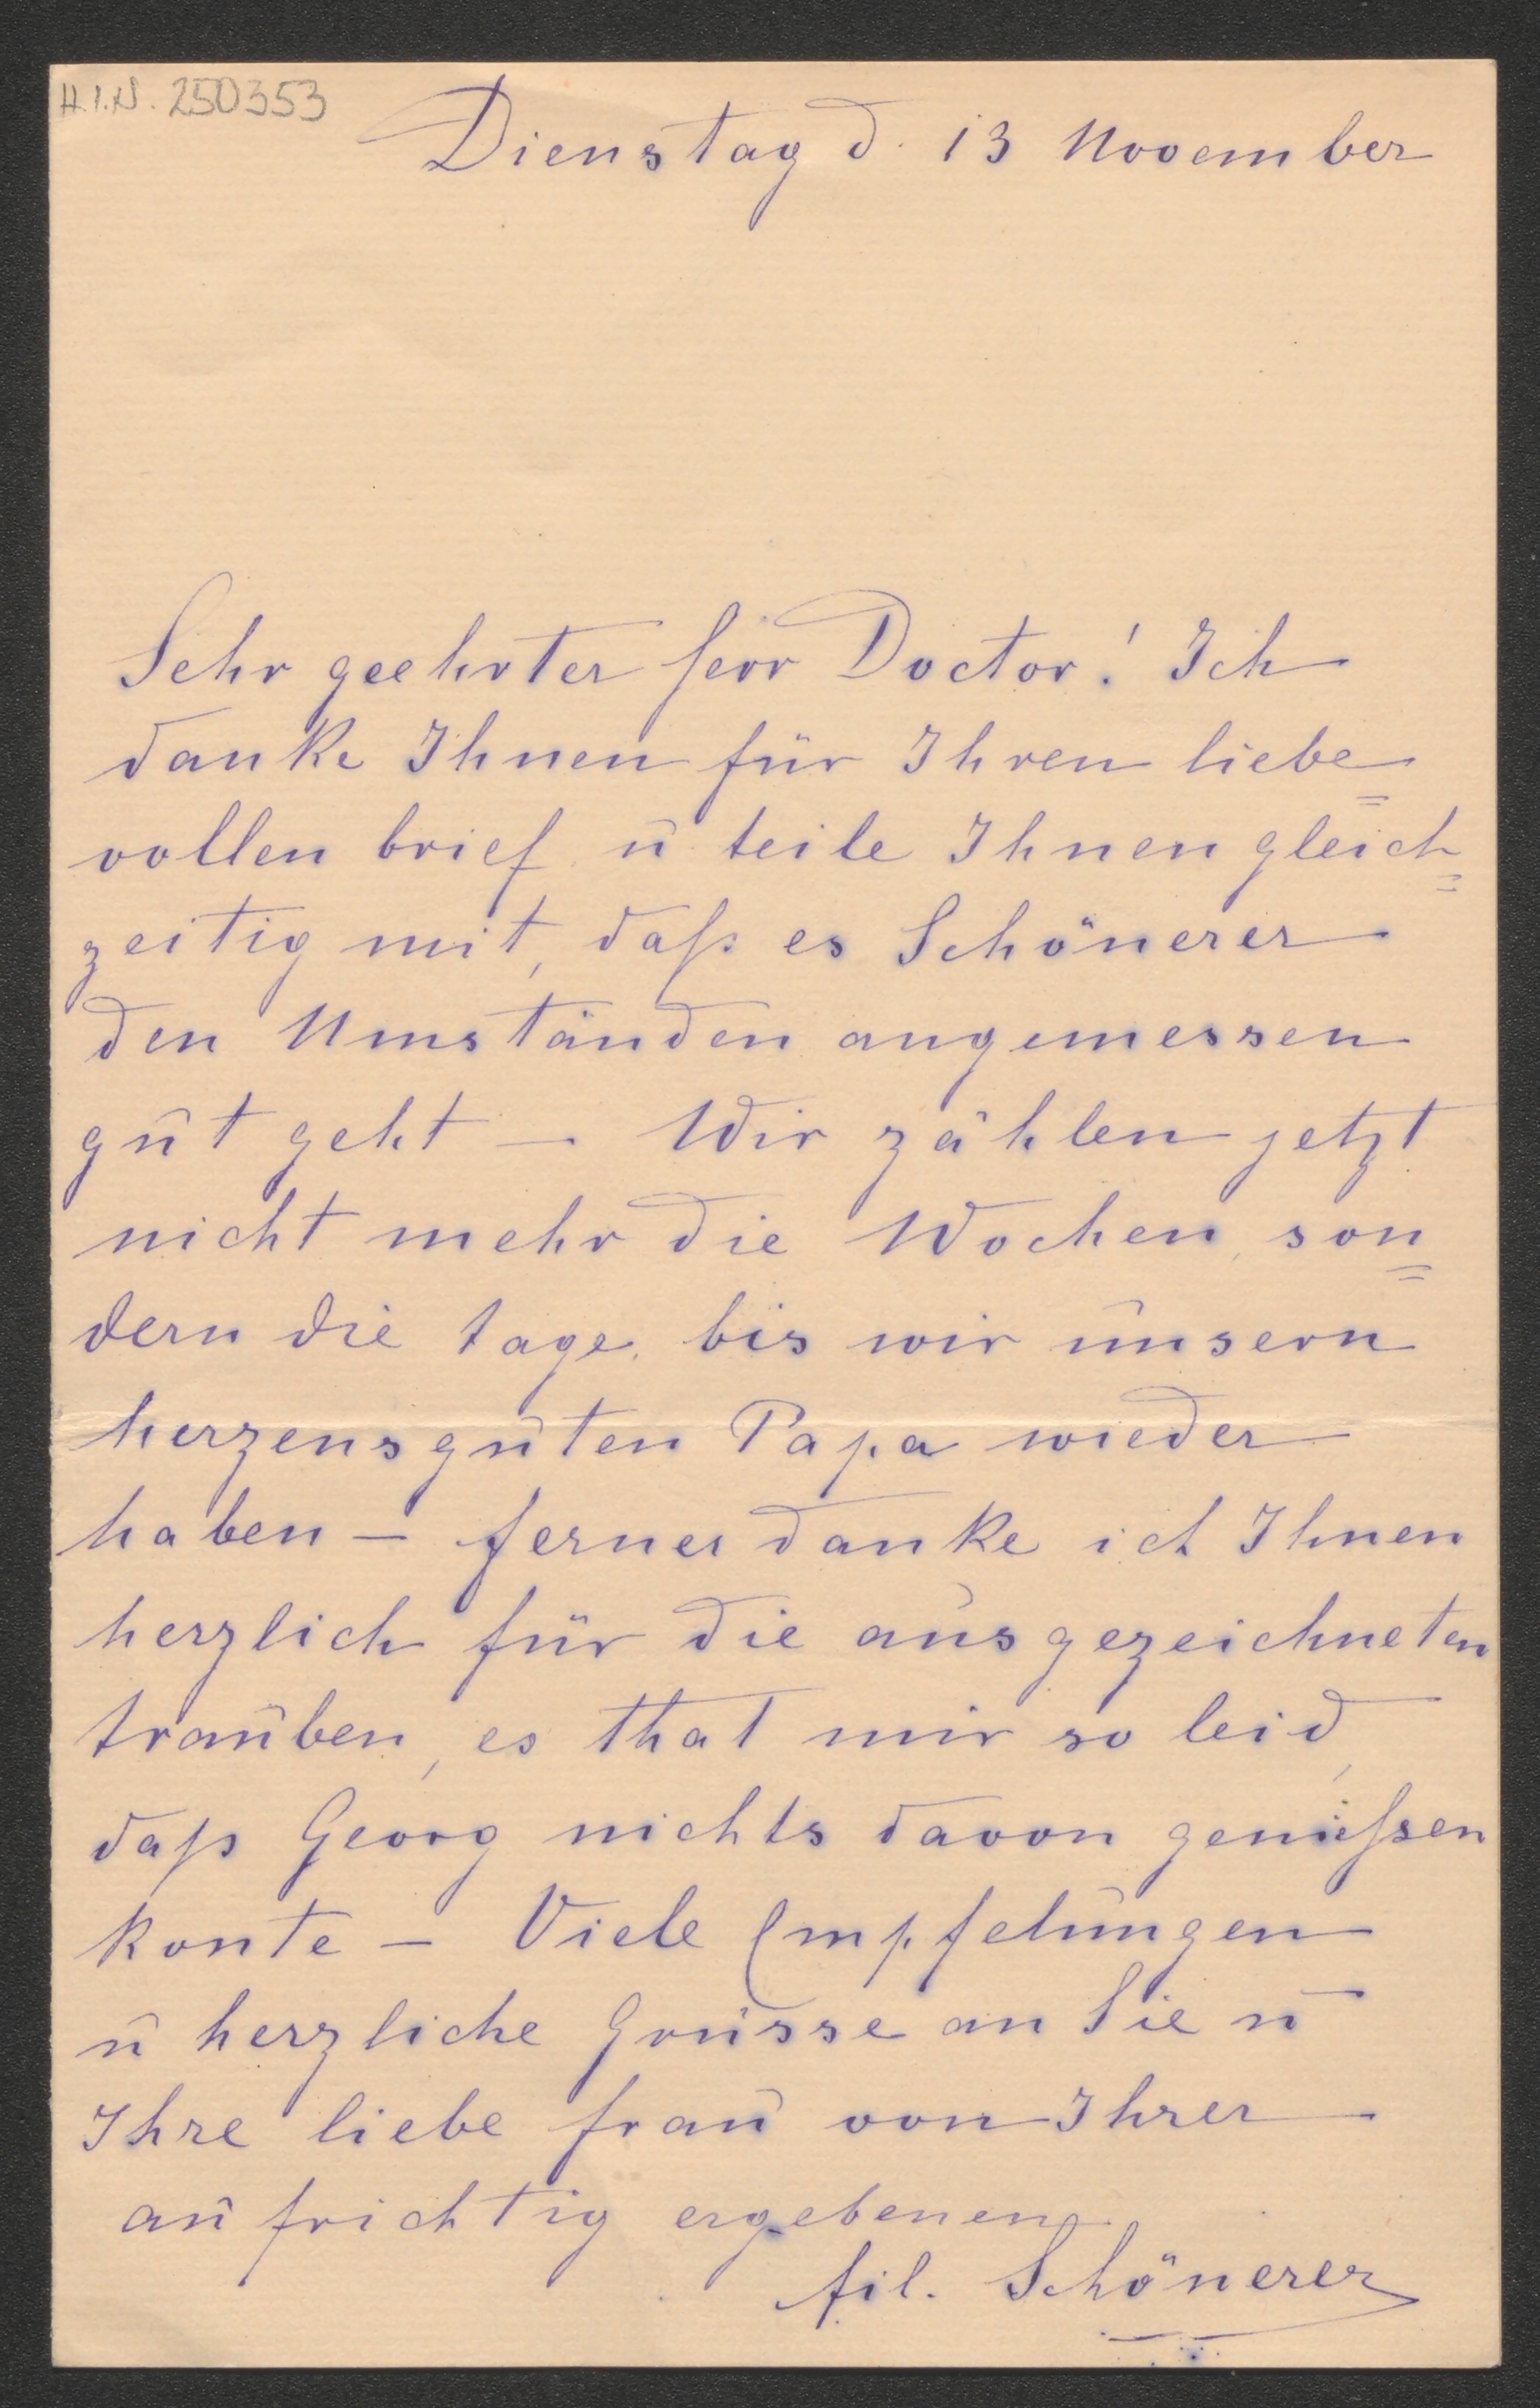 H.I.N. 250353
Dienstag d. 13 November
Sehr geehrter Herr Doctor! Ich
danke Ihnen für Ihren liebe=
vollen brief u teile Ihnen gleich=
zeitig mit, daß es Schönerer
den Umständen angemessen
gut geht – Wir zählen jetzt
nicht mehr die Wochen, son=
dern die tage, bis wir unsern
herzensguten Papa wieder
haben – ferner danke ich Ihnen
herzlich für die ausgezeichneten
trauben, es that mir so leid,
daß Georg nichts davon genießsen
konte – Viele Empfelungen
u herzliche Grüsse an Sie u
Ihre liebe frau von Ihrer
aufrichtig ergebenen
fil. Schönerer